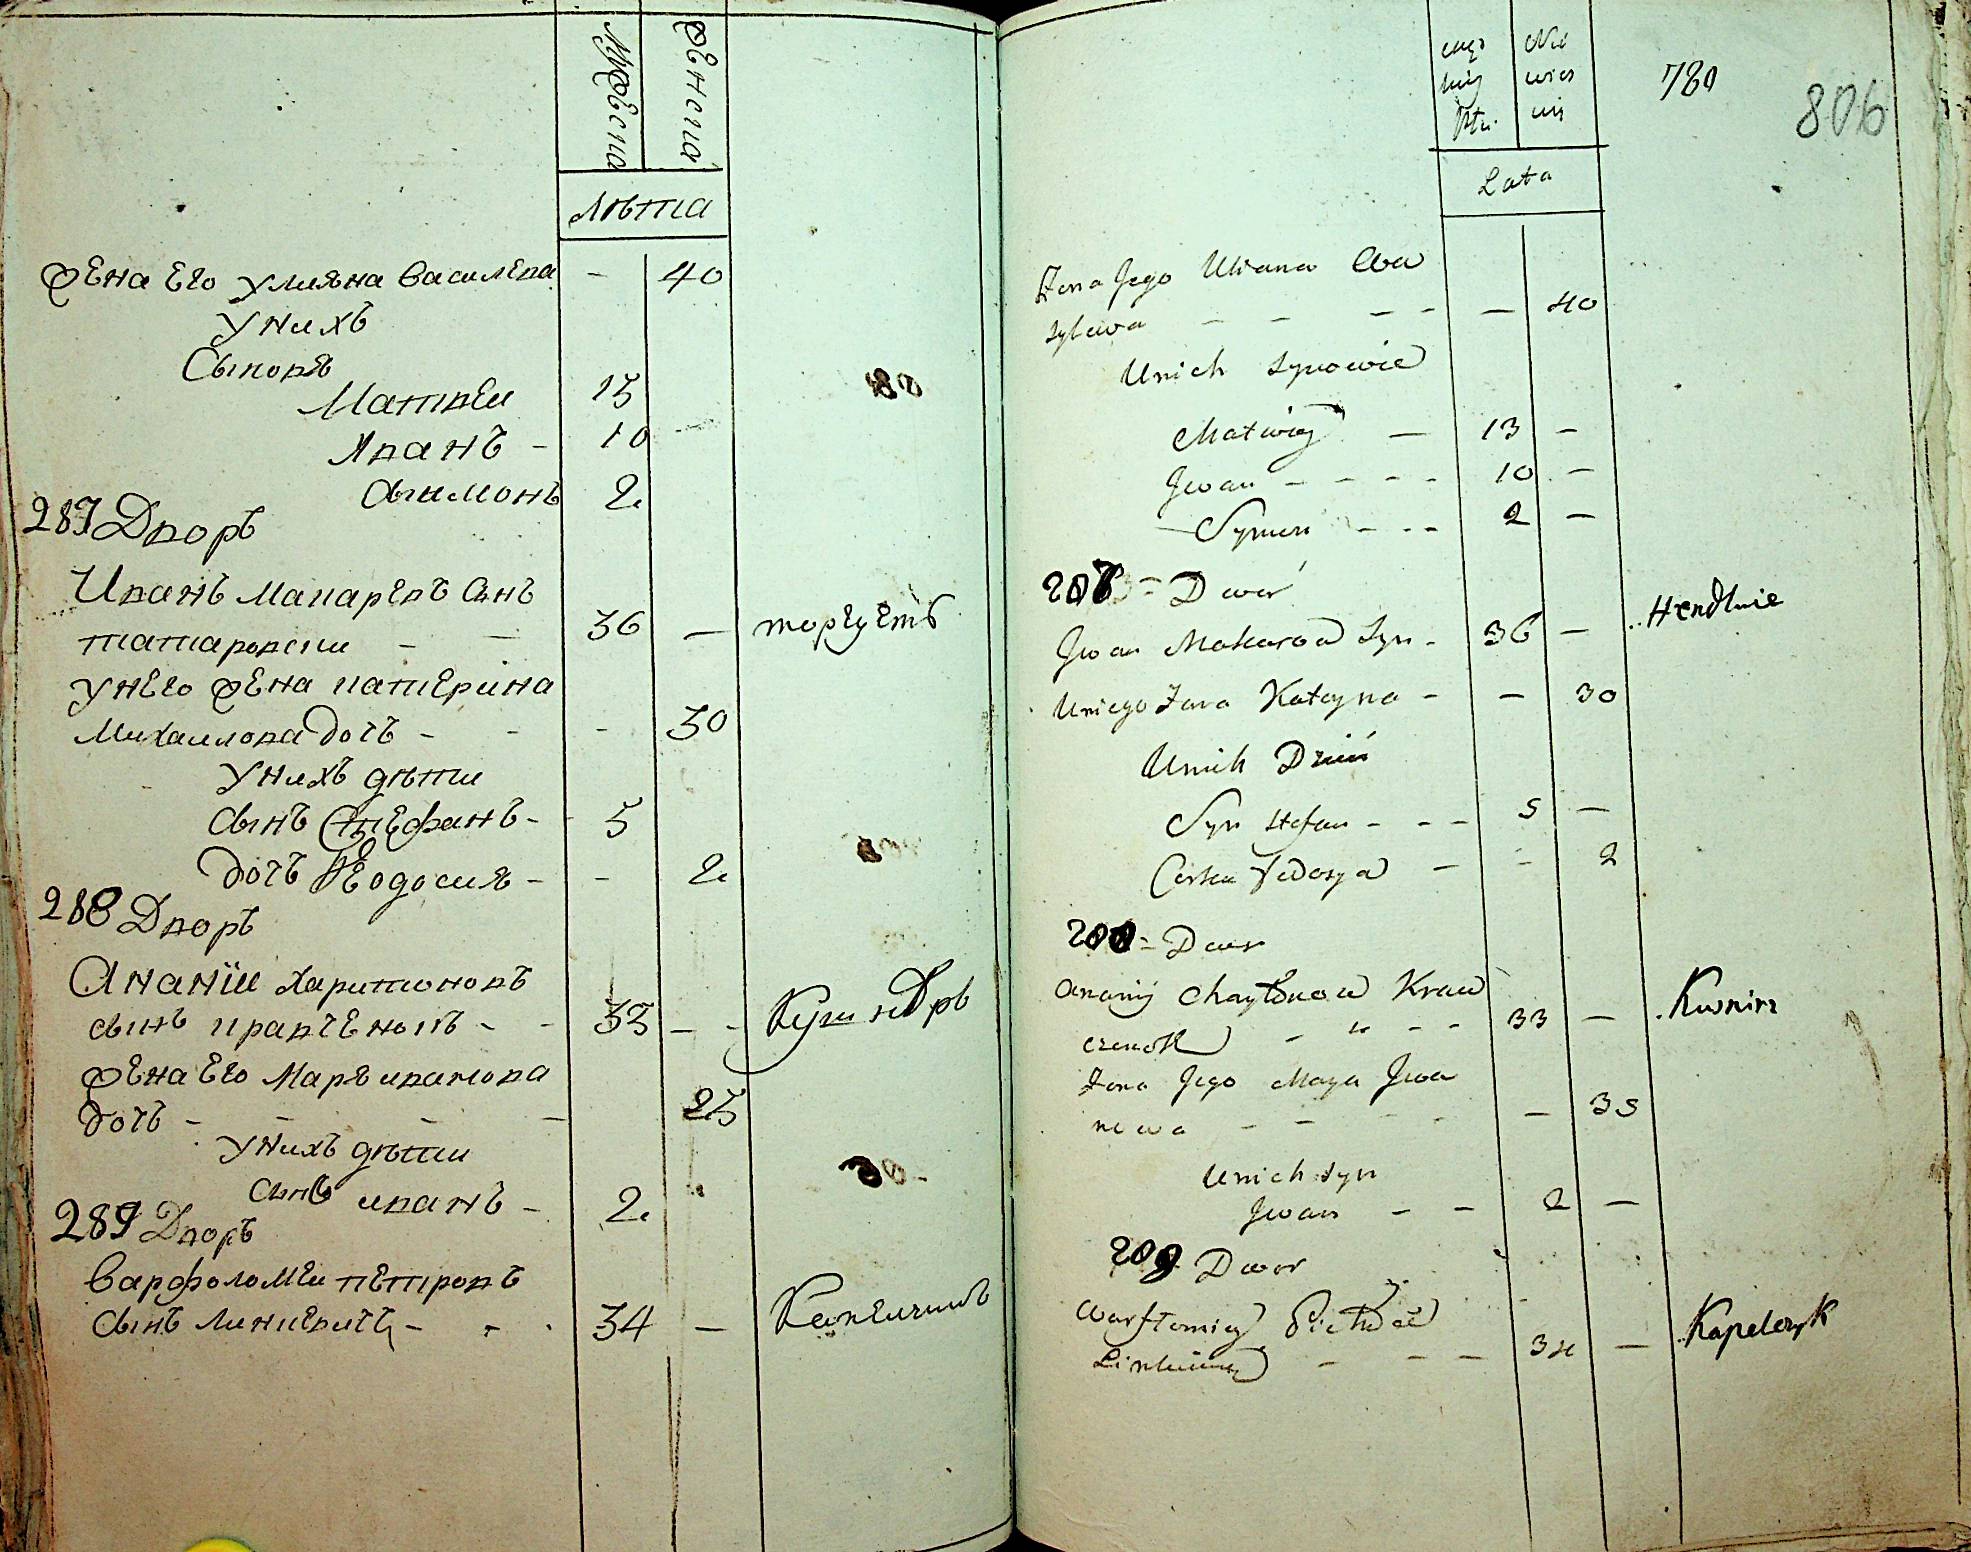 Мужеска
Женска
Лѣта
Жена Его Улияна Василева - 40
У нихъ
Сыновя
Матвеи 13
Иванъ - 10
Сымонъ 2
287 Дворъ
Иванъ Макаревъ Сынъ
татаровски - 36 — торгуетъ
У него жена катерина
Михаилова дочь - - 30
У нихъ дѣти
Сынъ Стефанъ - 5
Дочъ Феодосия - - 2
288 Дворъ
Ананїи харитоновъ
сынъ кравченокъ - 33 - - Кушнѣръ
жена Его Маря иванова
дочъ - 25
У нихъ дѣти
Сынъ иванъ - 2
289 Дворъ
Варфоломеи петровъ
Сынъ Линкевичъ - 34 —
780
806
Lata
Żona Jego Uliana Wa
sylewa - - - - — 40
Unich synowie
Matwiej — 13 —
Jwan - - - - 10 —
Symon - - - 2 —
287 = Dwor
Jwan Makarow Syn - 36 — Hendluie
Uniego Zona Kateryna - — 30
Unich Dzieci
Syn Stefan - - - 5 —
Corka Fedosya — - 2
288 = Dwor
Ananij Charytonow Kraw
czenok - - - 33 — Kusnirz
Zona Jego Marya Jwa
nowa - - — 35
Unich syn
Jwan - - 2 —
289 Dwor
Warftomiey
- - - 34 — Kapelczyk